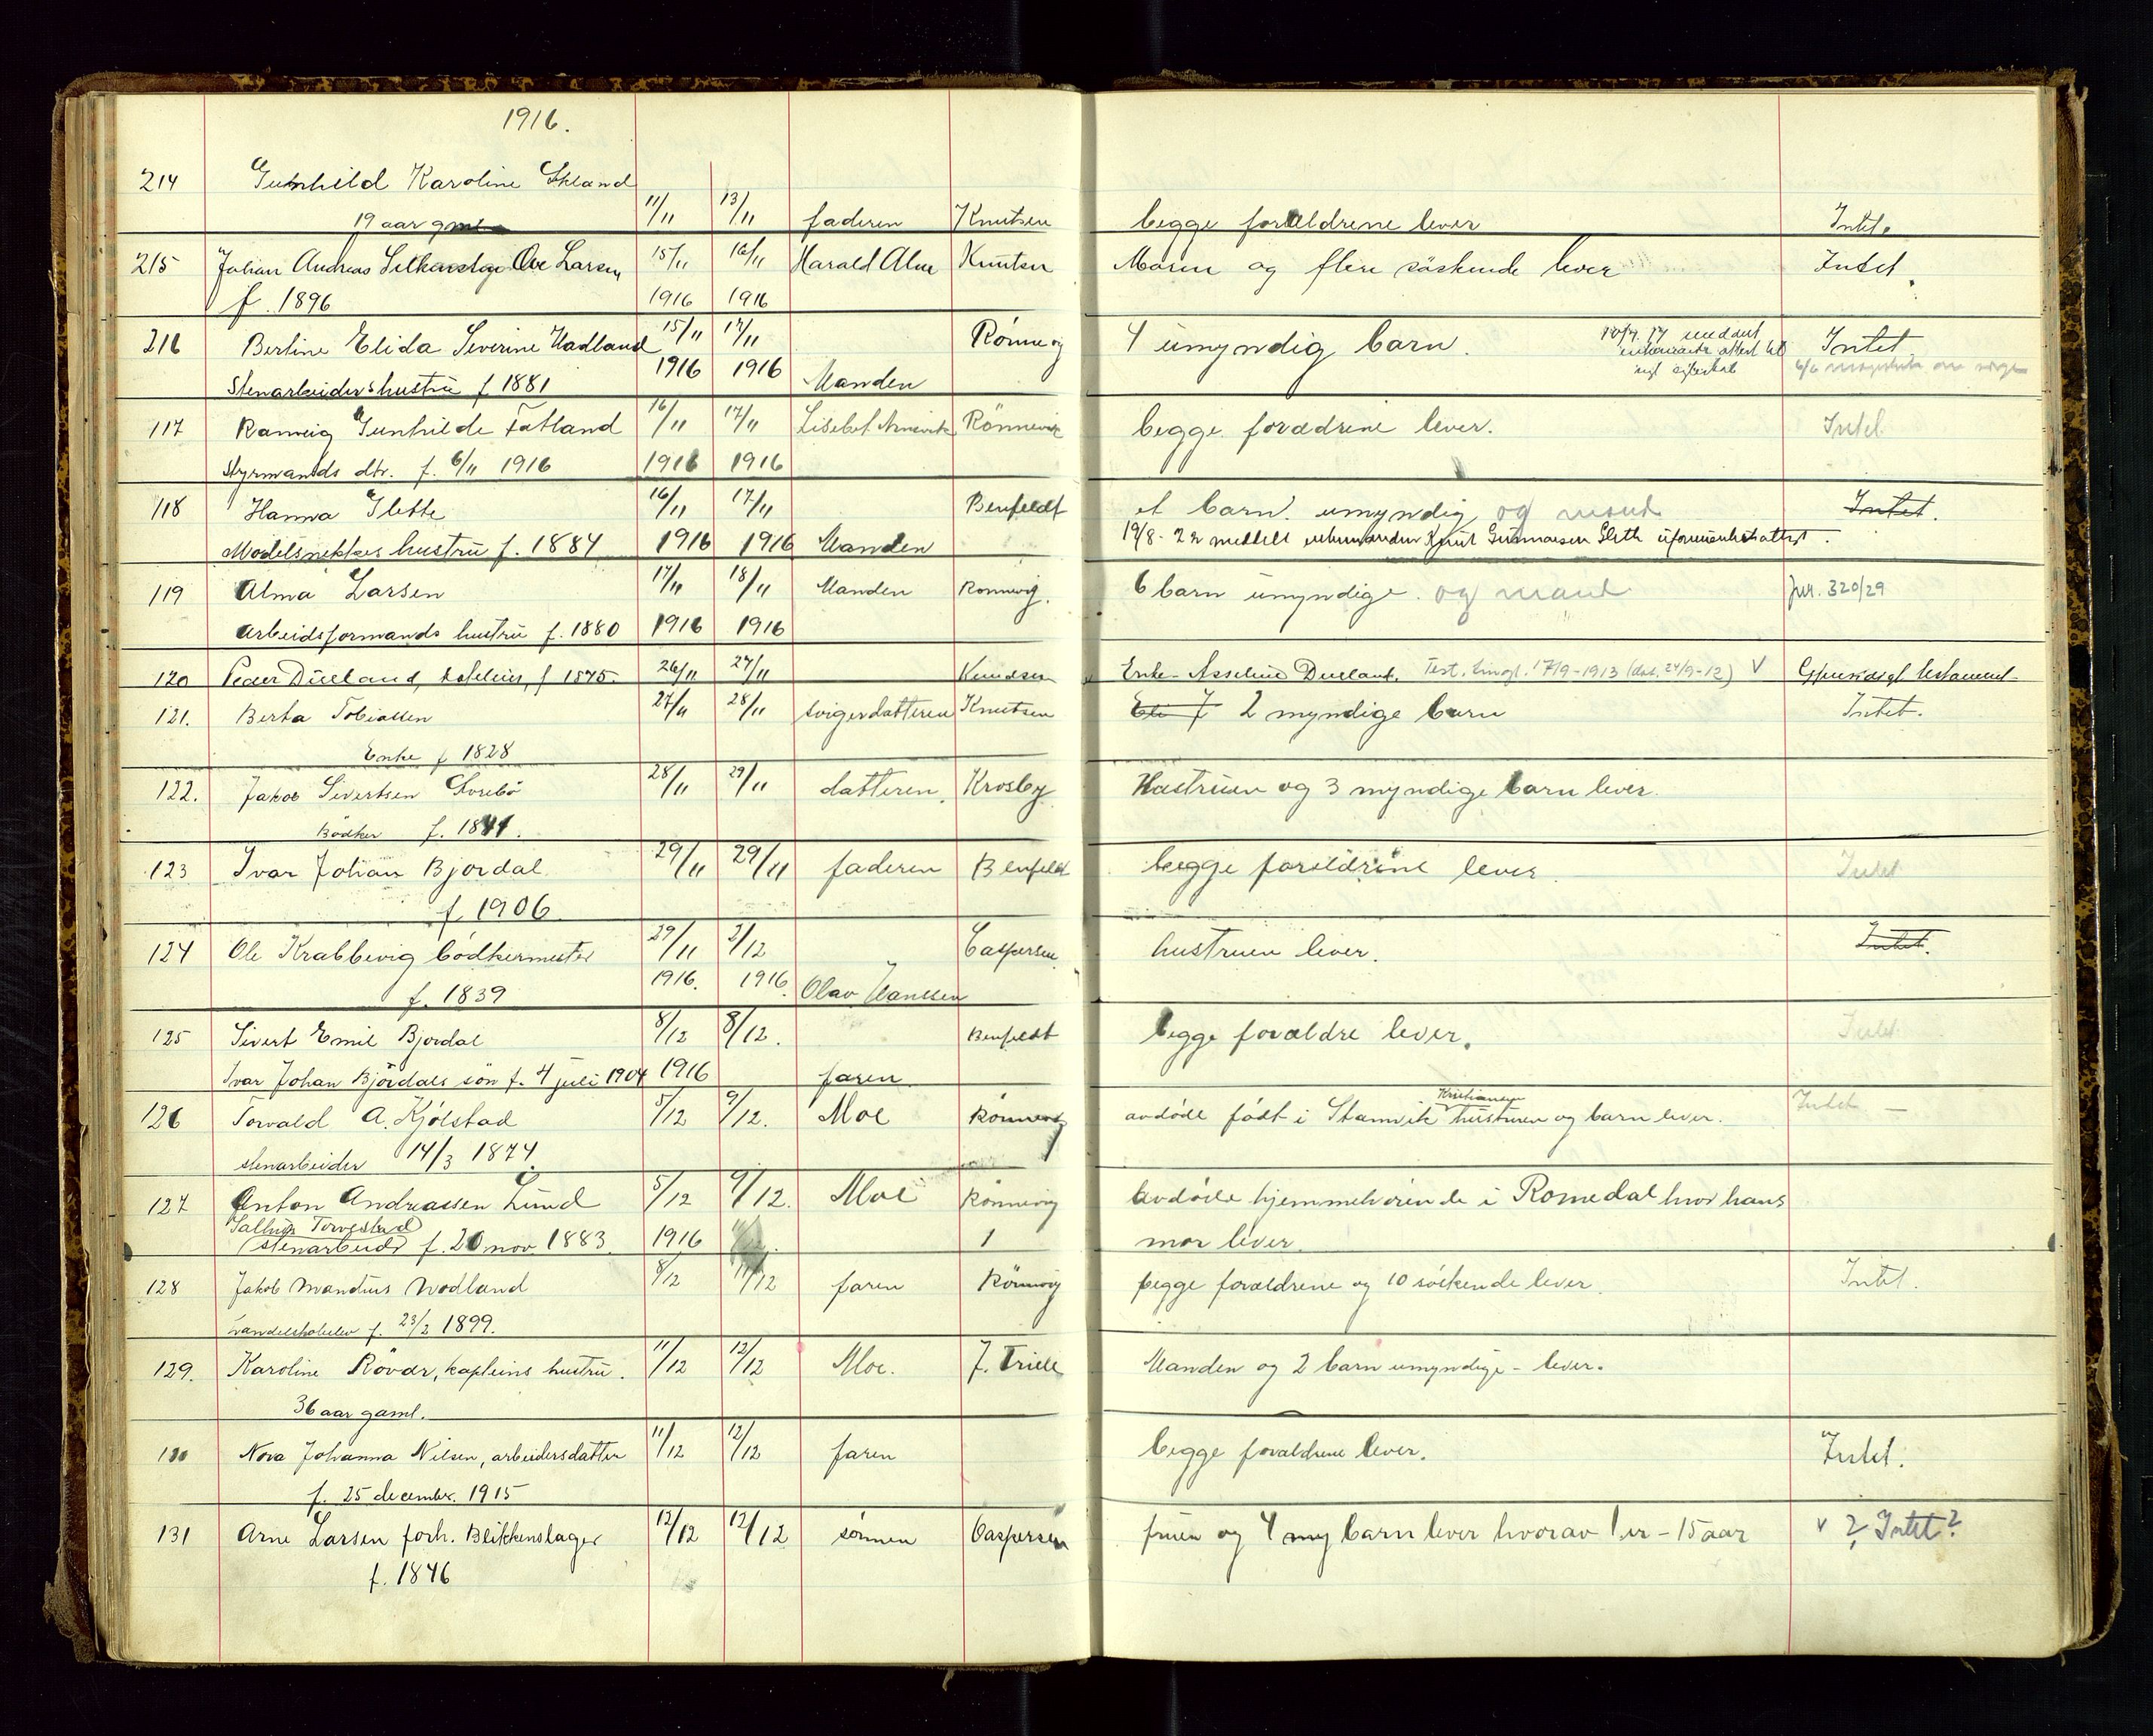 1916.
214 Gunhild Karoline
19 aar 11/11 13/11 faderen Knutsen begge forældrene lever Intet.
215 Julian Andreas Ove Larsen 15/11 16/11 Harald Alne Knutsen Moren og flere söskende lever Intet.
f. 1896 1916 1916
216 Bertine Elida Severine Hadland 15/11 17/11 4 umyndig barn. Intet
Stenarbeiders hustru f 1881 1916 1916 Manden
117 Ranveig Gunhilde Fatland 16/11 17/11 Lisebet Rönnevik begge forældrene lever. Intet
Styrmands dtr. f. 6/11 1916 1916 1916
118 Hanna Slette 16/11 17/11 Benfeldt et barn umyndig og mand Intet.
Modelsnekkes hustru f. 1884 1916 1916 Manden 19/8-22 meddelt enkemanden Knut Gunnarsen Slette uformuenhetsattest.
119 Alma Larsen 17/11 18/11 Manden Ronnevig. 6 barn umyndige og mand Jnr. 320/29
Arbeidsformands hustru f. 1880 1916 1916
120 Peder Dueland, f 1875 26/11 27/11 Knudsen Enke Asseline Dueland. Test. tingl. 17/9-1913 (dat. 24/9-12) V Gjensidigt testament
121. Berta Tobiassen 27/11 28/11 svigerdatteren Knutsen 2 myndige barn Intet.
Enke f 1828
122. Jakob Sivertsen 28/11 29/11 datteren. Krosby Hustruen og 3 myndige barn lever.
Bödker f. 1841.
123 Ivar Johan Bjordal 29/11 29/11 faderen Benfeldt begge forældrene lever. Intet
f. 1906
124 Ole Krabbevig bödkermester 29/11 2/12 Caspersen hustruen lever. Intet.
f. 1839 1916. 1916. Olav Hanssen
125 Sivert Emil Bjordal 8/12 8/12. Benfeldt begge forældre lever. Intet
Ivar Johan Björdals sön f. 4 juli 1904 1916 faren
Kristiansen
126 Torvald A. Kjölstad 5/12 9/12. Moe Rönnevig avdöde födt i Stamvik hustruen og barn lever. Intet —
stenarbeider 14/3 1874.
127 Anton Andreassen Lund 5/12 9/12. Moe Rönnevig Avdöde hjemmehörende i Romedal hvor hans
Torvestad
stenarbeider f. 20 nov 1883 1916 mor lever.
128 Jakob Mandius Nodland 8/12 11/12 faren Rönnevig begge forældrene og 10 söskende lever. Intet.
handelsskoleelev f. 23/2 1899.
129. Karoline Rövær, kapteins hustru. 11/12 12/12 Moe. J. Trille Manden og 2 barn umyndige - lever.
36 aar gaml.
130 Nora Johanna Nilsen, arbeidersdatter 11/12 12/12 faren begge forældrene lever. Intet.
f. 25 decembr. 1915
131 Arne Larsen forh. Blikkenslager 12/12 12/12 sönnen Caspersen fruen og 4 my barn lever hvorav 1 er - 15 aar v ? Intet?
f. 1846